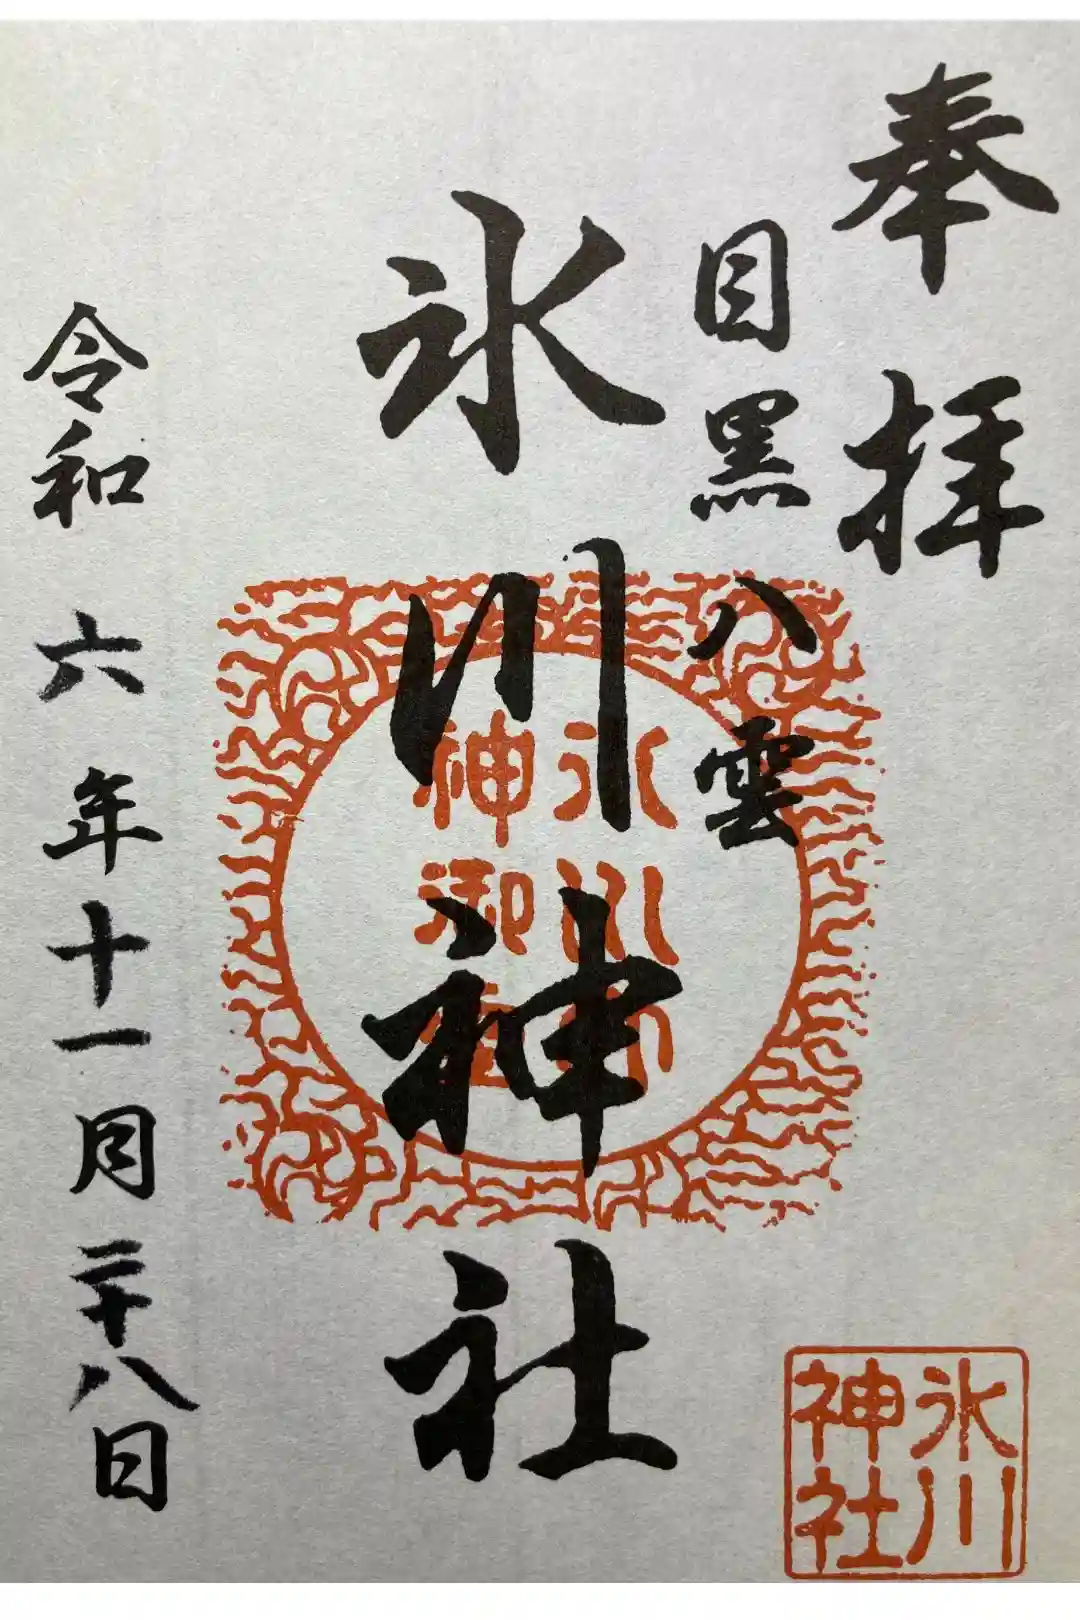 奉拝
目黒八雲
氷川神社
令和六年十一月二十八日
氷川
神社